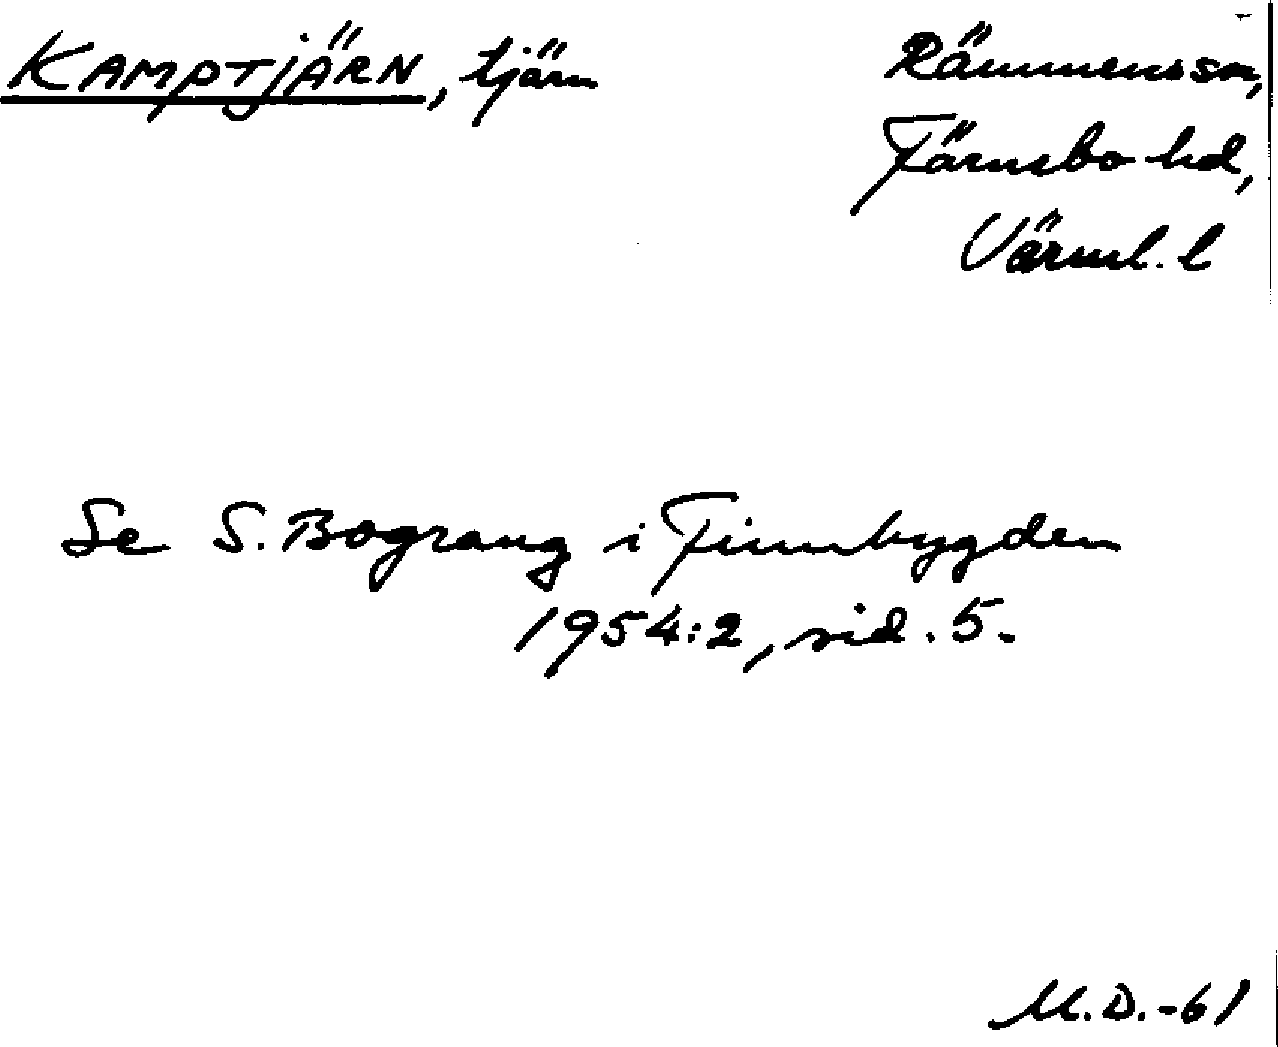 KAMPTJÄRN, tjärn
Rämmens sn,
Färnebo hd,
Värml. l
Se S. Bograng i Finnbygden
1954:2, sid. 5.
M.D.-61